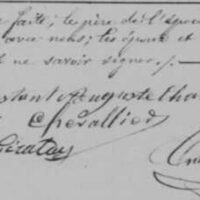 faite; le père de l'épou
avec nous; les époux et
ne savoir signer./.
Constant Auguste Cha
Chevallier